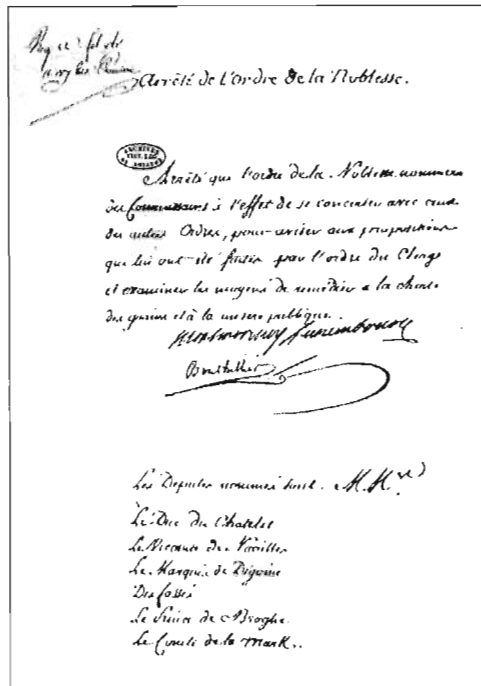 Arrêté de l'ordre de la Noblesse.
ARCHIVES
Arrêté que l'ordre de la Noblesse nommera
des Commissaires à l'effet de se concerter avec ceux
des autres Ordres, pour aviser aux propositions
que lui ont été faites par l'ordre du Clergé
et examiner les moyens de remédier a la cherté
des grains et à la misere publique.
Montmorency Luxembourg
Bouthillier
Les Deputés nommés sont. M.M.rs
Le Duc du Chatelet
Le Vicomte de Noailles
Le Marquis de
Le Prince de Broglie
Le Comte de la Mark..